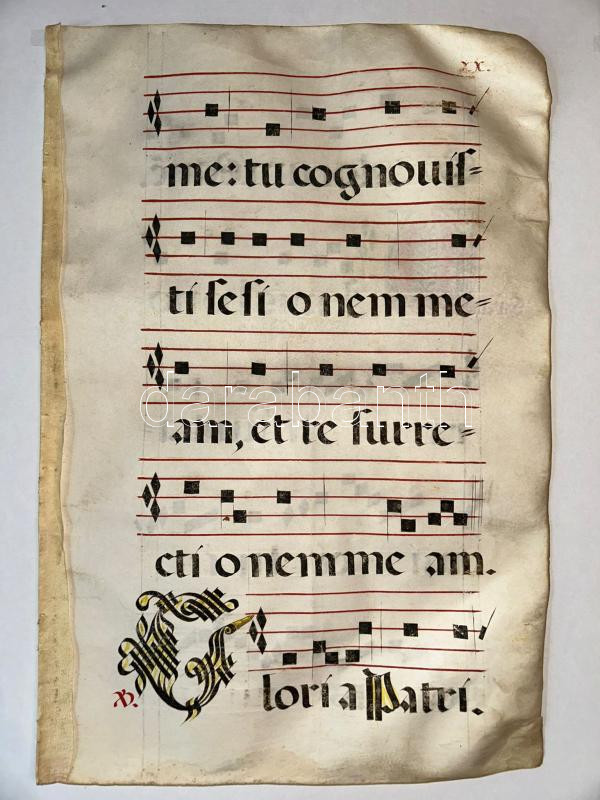 XX.
me: tu cognouis=
ti sesi o nem me=
am, et re surre=
darabanth
cti o nem me am.
Gloria Patri.